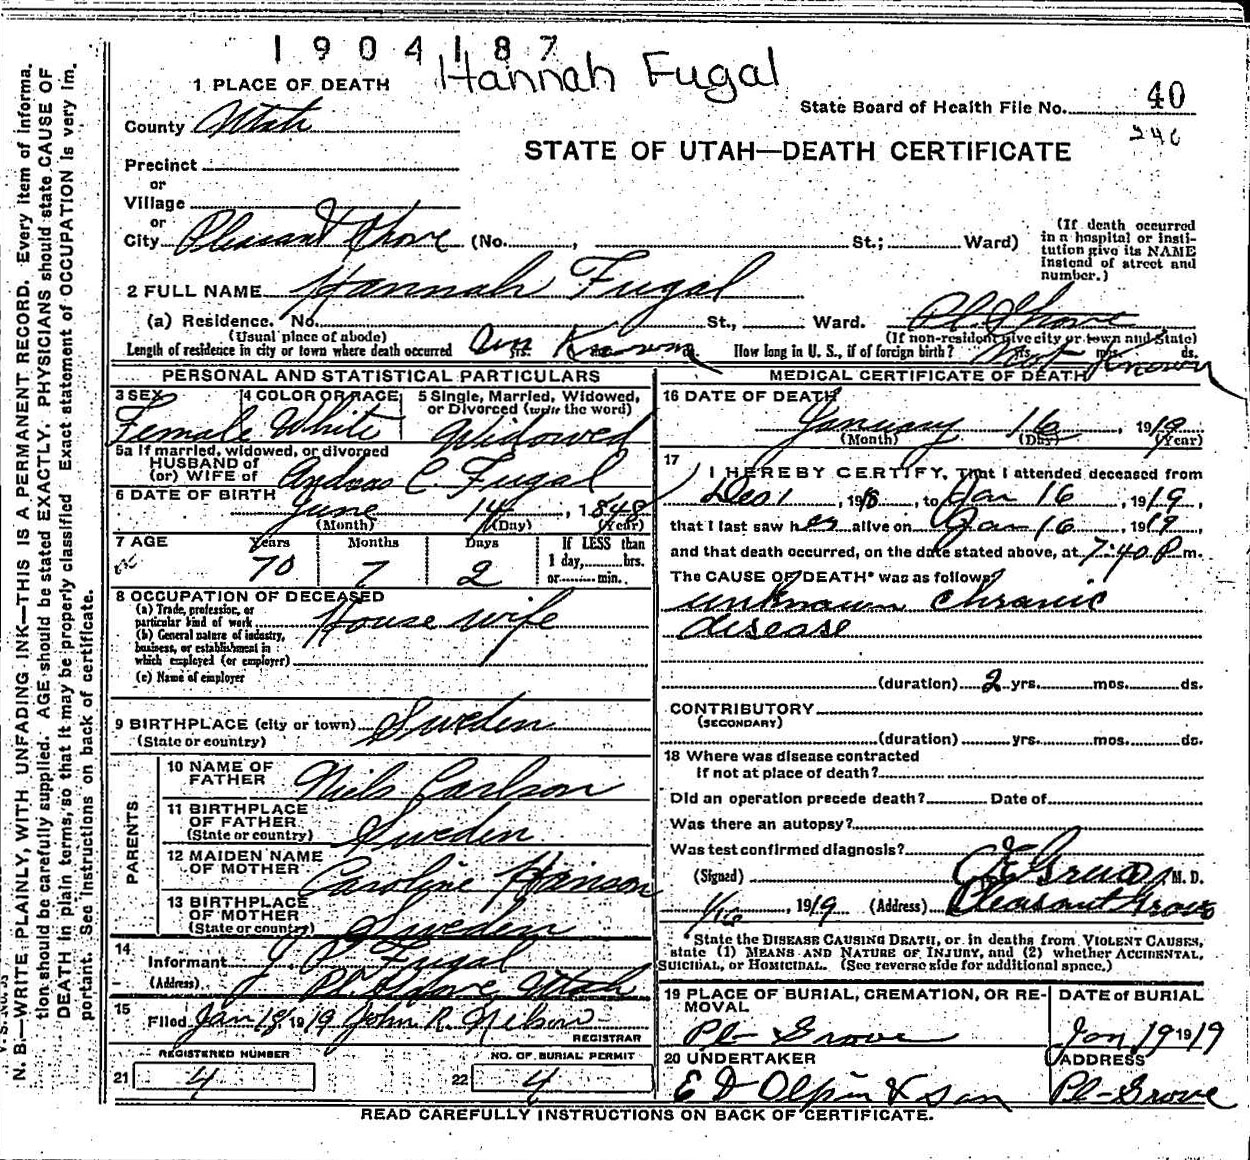 1904187
Hannah Fugal
1 PLACE OF DEATH
State Board of Health File No. 40
240
County Utah
STATE OF UTAH—DEATH CERTIFICATE
Precinct
or
Village
or
City Pleasant Grove (No. , St.; Ward)
(If death occurred in a hospital or insti-
tution give its NAME
instead of street and
number.)
2 FULL NAME Hannah Fugal
(a) Residence. No. St., Ward. Pl. Grove
(Usual place of abode) (If non-resident give city or town and State)
Length of residence in city or town where death occurred Un Known yrs. How long in U. S., if of foreign birth? Not Known yrs. mos. ds.
PERSONAL AND STATISTICAL PARTICULARS
3 SEX Female
4 COLOR OR RACE White
5 Single, Married, Widowed,
or Divorced (write the word)
Widowed
5a If married, widowed, or divorced
HUSBAND of
(or) WIFE of Andreas C. Fugal
6 DATE OF BIRTH
June 14, 1848
(Month) (Day) (Year)
7 AGE Years Months Days If LESS than
1 day, hrs.
or min.
70 7 2
8 OCCUPATION OF DECEASED
(a) Trade, profession, or
particular kind of work House wife
(b) General nature of industry,
business, or establishment in
which employed (or employer)
(c) Name of employer
9 BIRTHPLACE (city or town) Sweden
(State or country)
PARENTS
10 NAME OF
FATHER Niels Carlson
11 BIRTHPLACE
OF FATHER
(State or country) Sweden
12 MAIDEN NAME
OF MOTHER Caroline Hanson
13 BIRTHPLACE
OF MOTHER
(State or country) Sweden
14
Informant J. P. Fugal
(Address) Pl. Grove, Utah
15
Filed Jan 18, 1919 John R. Nelson
REGISTRAR
REGISTERED NUMBER NO. OF BURIAL PERMIT
21 4 22 4
MEDICAL CERTIFICATE OF DEATH
16 DATE OF DEATH
January 16, 1919
(Month) (Day) (Year)
17
I HEREBY CERTIFY, That I attended deceased from
Dec 1, 1918, to Jan 16, 1919,
that I last saw her alive on Jan 16, 1919,
and that death occurred, on the date stated above, at 7:40 P m.
The CAUSE OF DEATH* was as follows:
unknown chronic
disease
(duration) 2 yrs. mos. ds.
CONTRIBUTORY
(SECONDARY)
(duration) yrs. mos. ds.
18 Where was disease contracted
if not at place of death?
Did an operation precede death? Date of
Was there an autopsy?
Was test confirmed diagnosis?
(Signed) M. D.
1/16, 1919 (Address) Pleasant Grove
State the DISEASE CAUSING DEATH, or in deaths from VIOLENT CAUSES,
state (1) MEANS AND NATURE OF INJURY, and (2) whether ACCIDENTAL,
SUICIDAL, or HOMICIDAL. (See reverse side for additional space.)
19 PLACE OF BURIAL, CREMATION, OR RE-
MOVAL
Pl- Grove
DATE OF BURIAL
Jan 19 1919
20 UNDERTAKER
E D Olpin & Son
ADDRESS
Pl- Grove
READ CAREFULLY INSTRUCTIONS ON BACK OF CERTIFICATE.
N. B.—WRITE PLAINLY, WITH UNFADING INK—THIS IS A PERMANENT RECORD. Every item of informa-
tion should be carefully supplied. AGE should be stated EXACTLY. PHYSICIANS should state CAUSE OF
DEATH in plain terms, so that it may be properly classified. Exact statement of OCCUPATION is very im-
portant. See instructions on back of certificate.